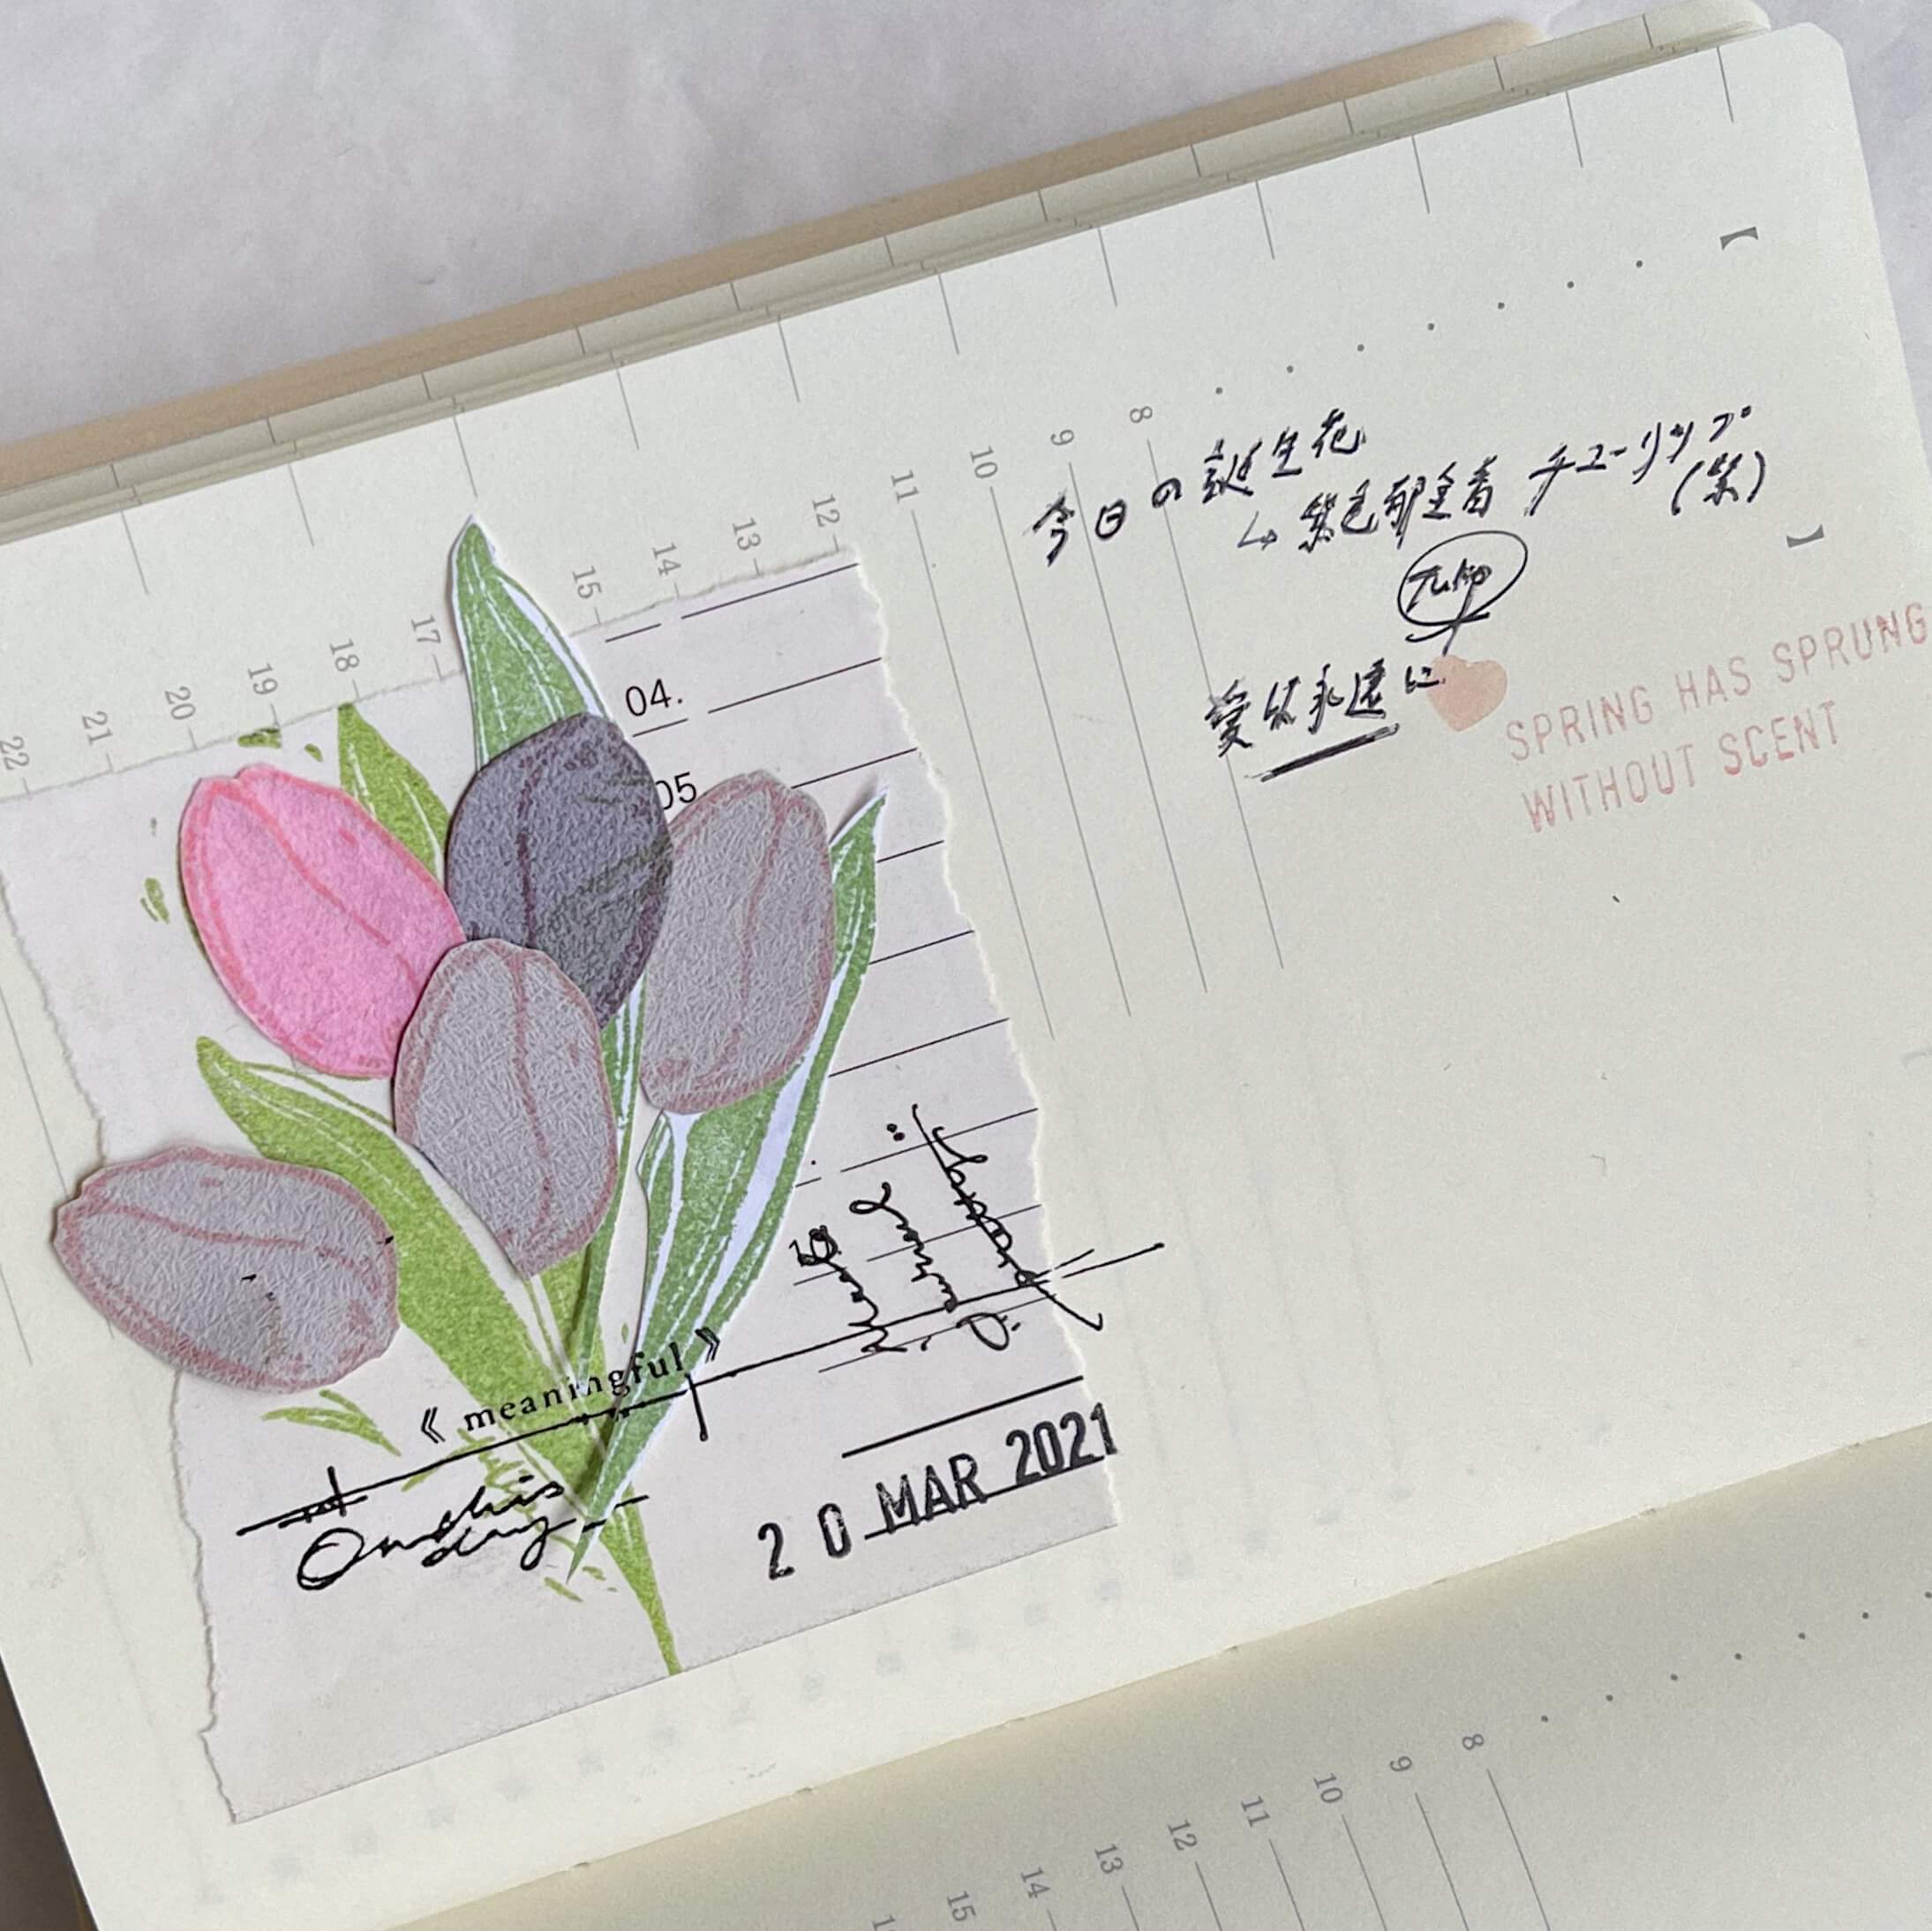 8
9
10
11
12
13
14
15
17
18
19
20
21
22
今日の誕生花
↳ 紫色郁金香 チューリップ
(紫)
Tulip
愛は永遠に
SPRING HAS SPRUNG
WITHOUT SCENT
【
】
04.
05
《 meaningful 》
On this
day
20 MAR 2021
8
9
10
11
12
13
14
15